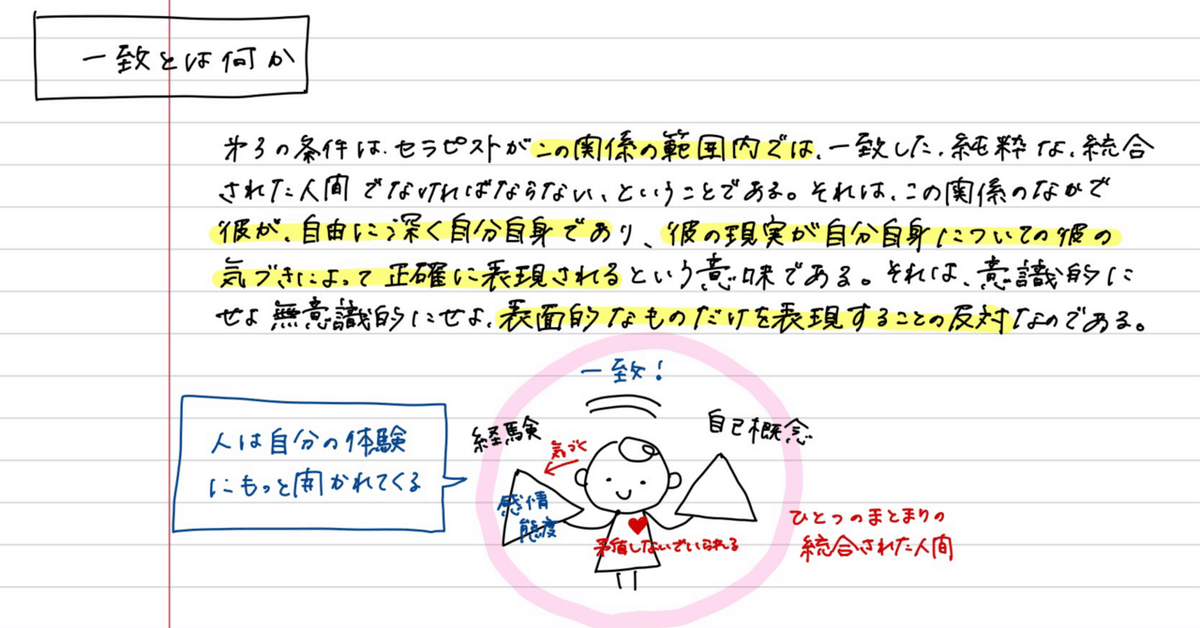 一致とは何か
第3の条件は、セラピストがこの関係の範囲内では、一致した、純粋な、統合
された人間でなければならない、ということである。それは、この関係のなかで
彼が、自由に深く自分自身であり、彼の現実が自分自身についての彼の
気づきによって正確に表現されるという意味である。それは、意識的に
せよ無意識的にせよ、表面的なものだけを表現することの反対なのである。
一致!
人は自分の体験
にもっと開かれてくる
経験
気づく
自己概念
感情
態度
矛盾しないでいられる
ひとつのまとまりの
統合された人間